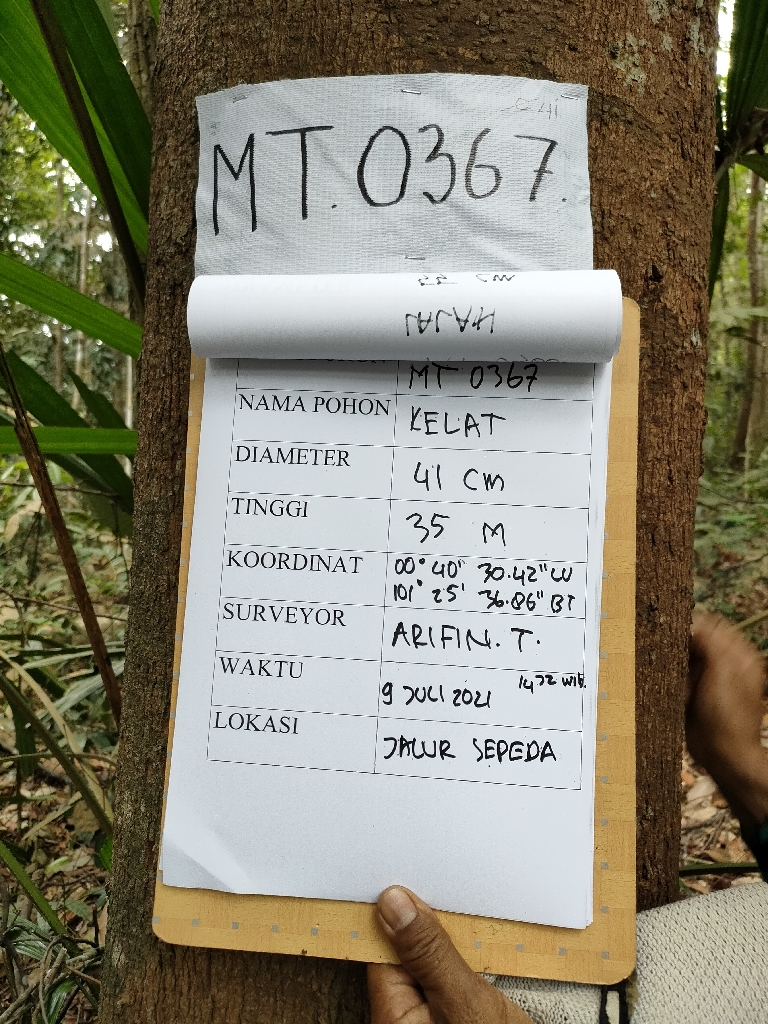 MT. 0367.
MT 0367
NAMA POHON KELAT
DIAMETER 41 Cm
TINGGI 35 M
KOORDINAT 00° 40" 30.42" LU
101° 25' 36.86" BT
SURVEYOR ARIFIN. T.
WAKTU 9 JULI 2021 WIB.
LOKASI JALUR SEPEDA